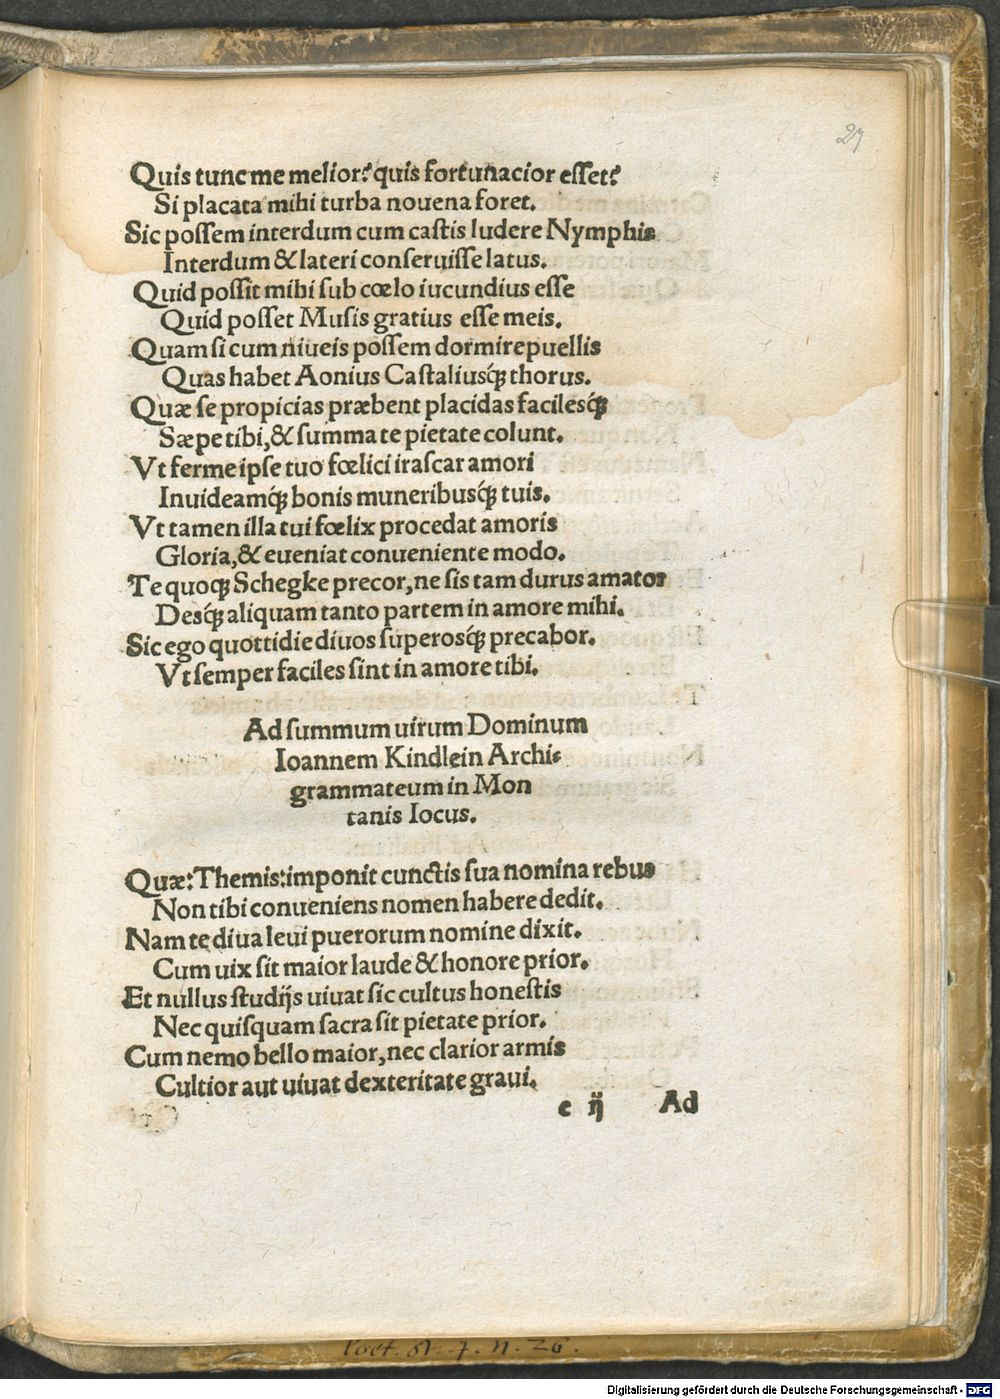 27
Quis tunc me melior? quis fortunacior esset?
Si placata mihi turba nouena foret.
Sic possem interdum cum castis ludere Nymphis
Interdum & lateri conseruisse latus.
Quid possit mihi sub cœlo iucundius esse
Quid posset Musis gratius esse meis.
Quam si cum niueis possem dormire puellis
Quas habet Aonius Castaliusq́; thorus.
Quæ se propicias præbent placidas facilesq́;
Sæpe tibi, & summa te pietate colunt.
Vt ferme ipse tuo fœlici irascar amori
Inuideamq́; bonis muneribusq́; tuis.
Vt tamen illa tui fœlix procedat amoris
Gloria, & eueniat conueniente modo.
Te quoq; Schegke precor, ne sis tam durus amator
Desq́; aliquam tanto partem in amore mihi.
Sic ego quottidie diuos superosq́; precabor.
Vt semper faciles sint in amore tibi.
Ad summum uirum Dominum
Ioannem Kindlein Archi⸗
grammateum in Mon
tanis Iocus.
Quæ: Themis: imponit cunctis sua nomina rebus
Non tibi conueniens nomen habere dedit.
Nam te diua leui puerorum nomine dixit.
Cum uix sit maior laude & honore prior.
Et nullus studijs uiuat sic cultus honestis
Nec quisquam sacra sit pietate prior.
Cum nemo bello maior, nec clarior armis
Cultior aut uiuat dexteritate graui.
e ij Ad
Poet. st. 7. n. 26.
Digitalisierung gefördert durch die Deutsche Forschungsgemeinschaft - DFG